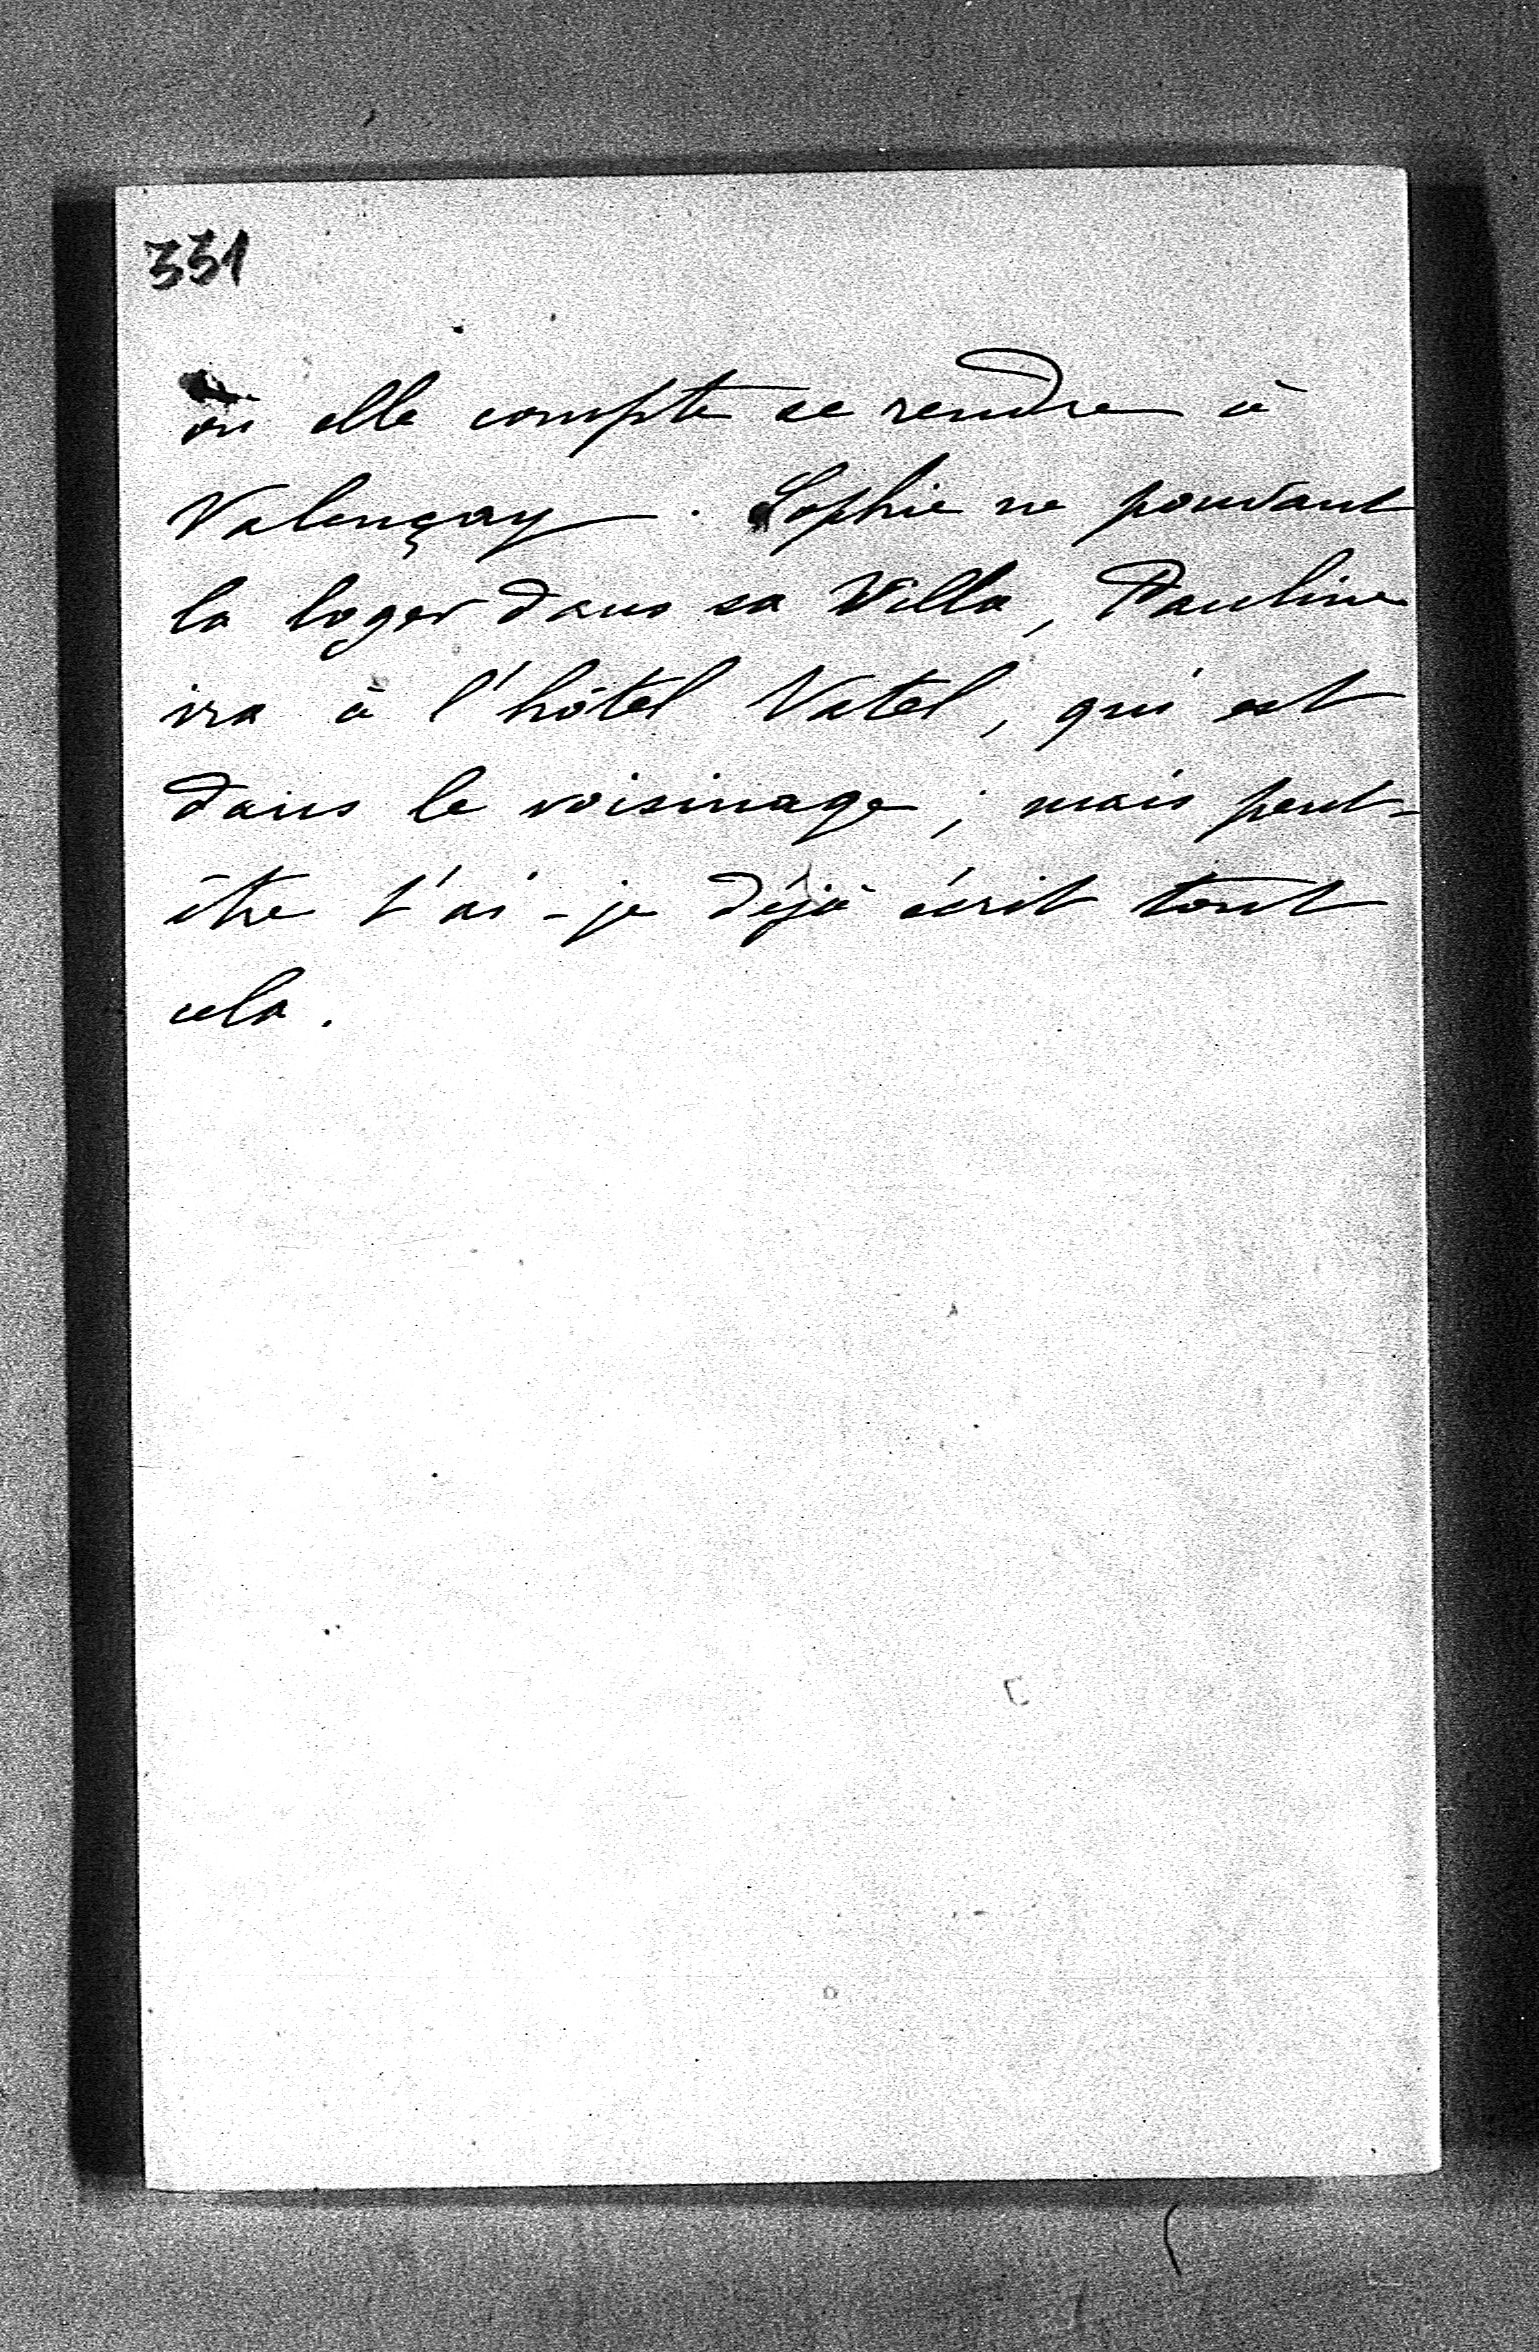 331
où elle compte se rendre à
Valençay. Sophie ne pouvant
la loger dans sa Villa, Pauline
ira à l'hôtel Vatel, qui est
dans le voisinage; mais peut-
être t'ai-je déjà écrit tout
cela.